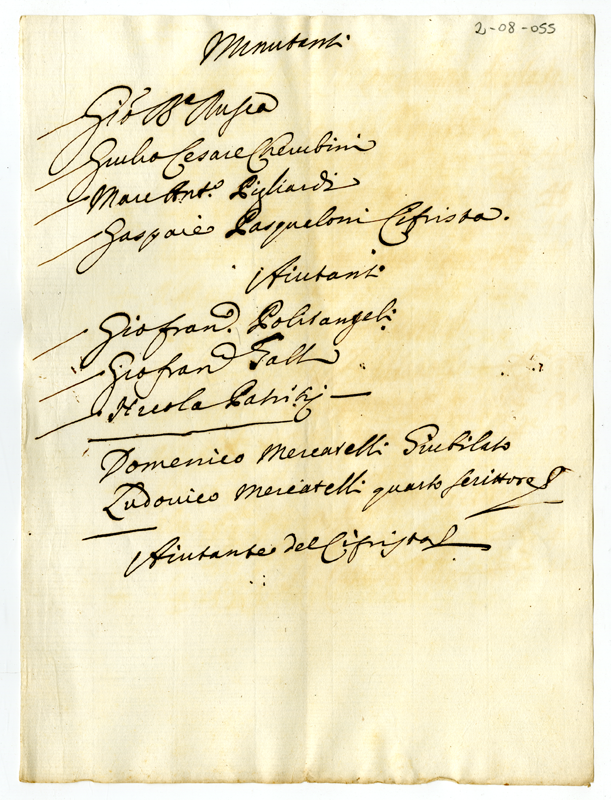 2-08-055
Minutanti
Gio Bᵃ Rusca
Giulio Cesare Cherubini
Marc Antᵒ Pigliardi
Gaspare Pasqualoni Cifrista.
Aiutanti
Giofranᵒ. Politangeli
Giofranᵒ Galli
Nicola Patritij
Domenico Mercatelli Giubilato
Ludovico Mercatelli quarto scrittore
Aiutante del Cifrista